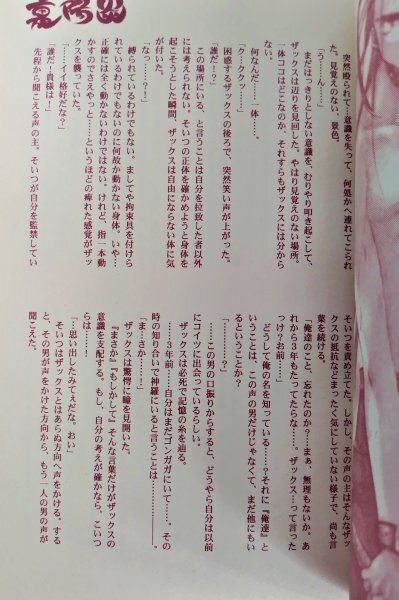 突然殴られて…意識を失って、何処かへ連れてこられ
た。見覚えのない、景色。
「う……ん…」
まだはっきりとしない意識を、むりやり叩き起こして、
ザックスは辺りを見回した。やはり見覚えのない場所。
一体ココはどこなのか、それすらもザックスには分から
ない。
何なんだ……一体……。
「ク…ククッ…」
困惑するザックスの後ろで、突然笑い声が上がった。
「誰だ！？」
この場所にいる、と言うことは自分を拉致した者以外
には考えられない。そいつの正体を確かめようと身体を
起こそうとした瞬間、ザックスは自由にならない体に気
が付いた。
「なっ……？！」
縛られているわけでもない。ましてや拘束具を付けら
れているわけでもないのに何故か動かない身体。いや…
正確には全く動かないわけではない。けれど、指一本動
かすのでさえやっと……というほどの痺れた感覚がザッ
クスを襲っていた。
「……イイ格好だな？」
「誰だ！貴様は！」
先程から聞こえる声の主、そいつが自分を監禁してい
そいつを責め立てた。しかし、その声の主はそんなザッ
クスの抵抗などまったく気にしていない様子で、尚も言
葉を続ける。
「俺達のこと、忘れたのか？……まぁ、無理もないか。あ
れから3年もたってたらな……。ザックス…って言った
っけ？お前」
どうして俺の名を知っている……？それに『俺達』と
いうことは、この声の男だけじゃなくて、まだ他にもい
るということか？
「………？」
……この男の口振りからすると、どうやら自分は以前
にコイツに出会っているらしい。
ザックスは必死で記憶の糸を辿る。
……3年前……自分はまだゴンガガにいて……。その
時の知り合いで神羅にいると言うことは――――。
「ま…さか……！」
ザックスは驚愕に瞳を見開いた。
『まさか』『もしかして』そんな言葉だけがザックスの
意識を支配する。もし、自分の考えが確かなら、こいつ
らは……！
「…思い出したみてぇだな。おい」
そいつはザックスとはあらぬ方向へ声をかける。する
と、その男が声をかけた方向から、もう一人の男の声が
聞こえた。